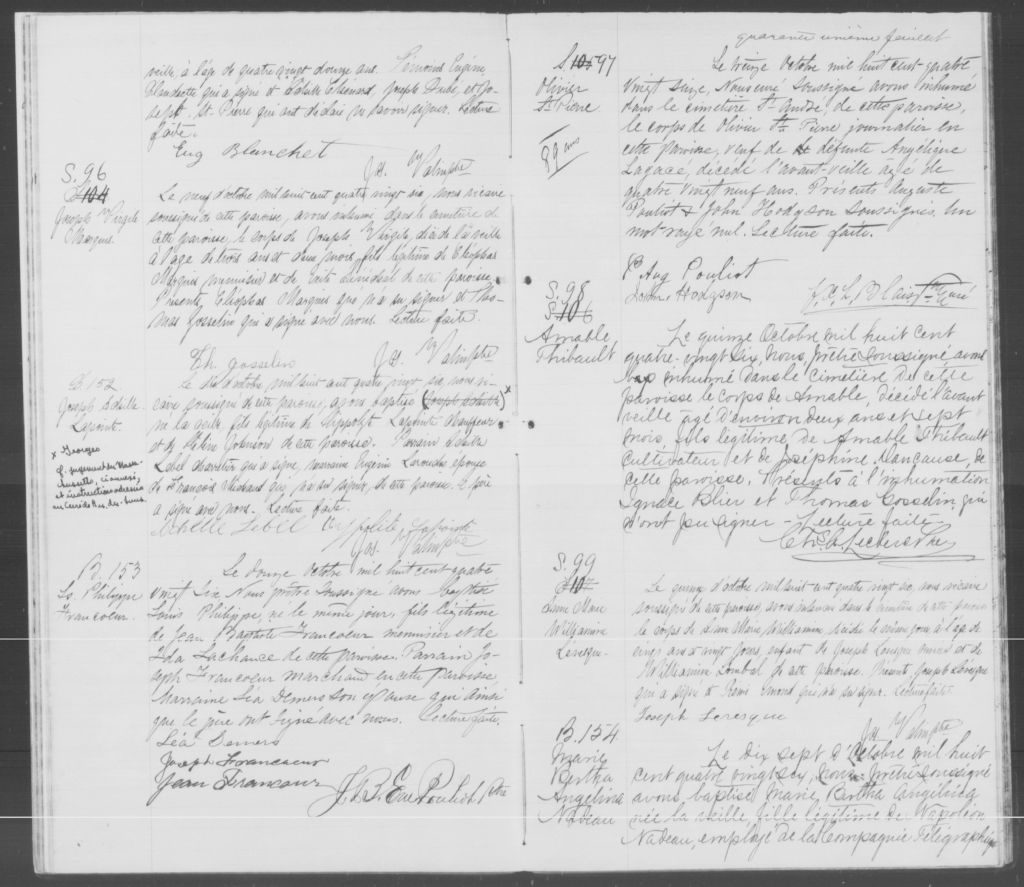 veille, à l'âge de quatre vingt douze ans. Témoins Eugène
Blanchette qui a signé et Achille Chenard, Joseph Dubé et Jo-
seph St. Pierre qui ont déclaré ne savoir signer. Lecture
faite.
Eug Blanchet
S. 96
S. 104
Joseph Virgile
Marquis.
Le neuf d'octobre mil huit cent quatre vingt six, nous vicaire
soussigné de cette paroisse, avons inhumé dans le cimetière de
cette paroisse, le corps de Joseph Virgile, décédé l'avant veille
à l'âge de trois ans et deux mois, fils légitime de Cléophas
Marquis menuisier et de cette paroisse.
Présents, Cléophas Marquis que n'a su signer et Tho-
mas Gosselin qui a signé avec nous. Lecture faite.
Th. Gosselin
B. 152
Joseph Achille
Lapointe
x Georges
Le dix d'octobre mil huit cent quatre vingt six, nous vi-
caire soussigné de cette paroisse, avons baptisé (Joseph Achille) x
né la veille, fils légitime de Hippolyte Lapointe
et de Johnson de cette paroisse. Parrain Achille
Lebel charretier qui a signé, marraine Eugénie Larouche épouse
de François Michaud qui n'a su signer, de cette paroisse. Le père
a signé avec nous. Lecture faite.
Achille Lebel Hyppolite Lapointe
B. 153
Ls. Philippe
Francoeur.
Le douze octobre mil huit cent quatre
vingt Six Nous prêtre soussigné avons baptisé
Louis Philippe, né le même jour, fils légitime
de Jean Baptiste Francoeur menuisier et de
Ida Lachance de cette paroisse. Parrain Jo-
seph Francoeur marchand en cette paroisse,
Marraine Léa Demers son épouse qui ainsi
que le père ont signé avec nous. Lecture faite,
Léa Demers
Joseph Francoeur
Jean Francoeur
J. B. Eue Pouliot Ptre
quarante unième feuillet
S 105 97
Olivier
St Pierre
89 ans
Le treize Octobre mil huit cent quatre
vingt Six, Nous curé soussigné avons inhumé
dans le cimetière St André de cette paroisse
le corps de Olivier St Pierre journalier en
cette paroisse, veuf de défunte Angélique
Lagacé, décédé l'avant-veille âgé de
quatre vingt neuf ans. Présents Auguste
Pouliot & John Hodgson soussignés. Un
mot rayé nul. Lecture faite.
Aug Pouliot
John Hodgson
Blais Ptre Curé
S. 98
S. 106
Amable
Thibault
Le quinze Octobre mil huit cent
quatre-vingt Six, Nous, prêtre soussigné avons
inhumé dans le cimetière de cette
paroisse le corps de Amable, décédé l'avant
veille âgé d'environ deux ans et sept
mois, fils légitime de Amable Thibault
cultivateur et de Joséphine Mancause, de
cette paroisse. Présents à l'inhumation
Ignace Blier et Thomas Gosselin qui
n'ont pu signer - Lecture faite -
S. 99
S. 10
Marie
Williamine
Lévesque
Le quinze d'octobre mil huit cent quatre vingt six, nous vicaire
soussigné de cette paroisse, avons inhumé dans le cimetière de cette paroisse
le corps de Marie Williamine, décédée le même jour à l'âge de
ans et vingt jours, enfant de Joseph Lévesque et de
Williamine de cette paroisse. Présents Joseph Lévesque
qui a signé et Rémi Émond qui n'a su signer. Lecture faite
Joseph Levesque
B. 154
Marie
Bertha
Angélina
Nadeau
Le Dix sept d'Octobre mil huit
cent quatre vingt six, nous prêtre soussigné
avons baptisé Marie Bertha Angélina
née la veille, fille légitime de Napoléon
Nadeau, employé de la Compagnie Télégraphique